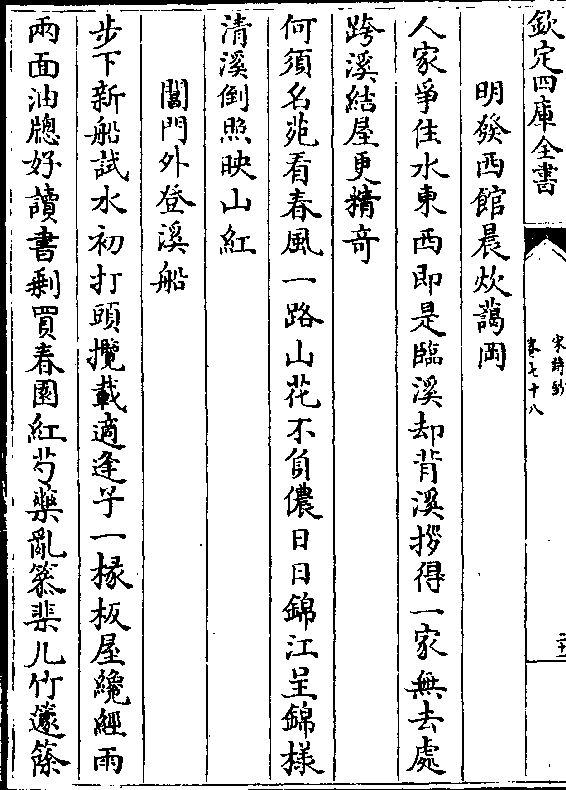 欽定四庫全書
宋詩鈔
卷七十八
明發西館晨炊藹岡
人家爭住水東西即是臨溪却背溪拶得一家無去處
跨溪結屋更精奇
何須名苑看春風一路山花不負儂日日錦江呈錦様
清溪倒照映山紅
閶門外登溪船
步下新船試水初打頭攬載適逢予一椽板屋纔經雨
兩面油牕好讀書剩買春園紅芍藥亂篸棐几竹籧篨